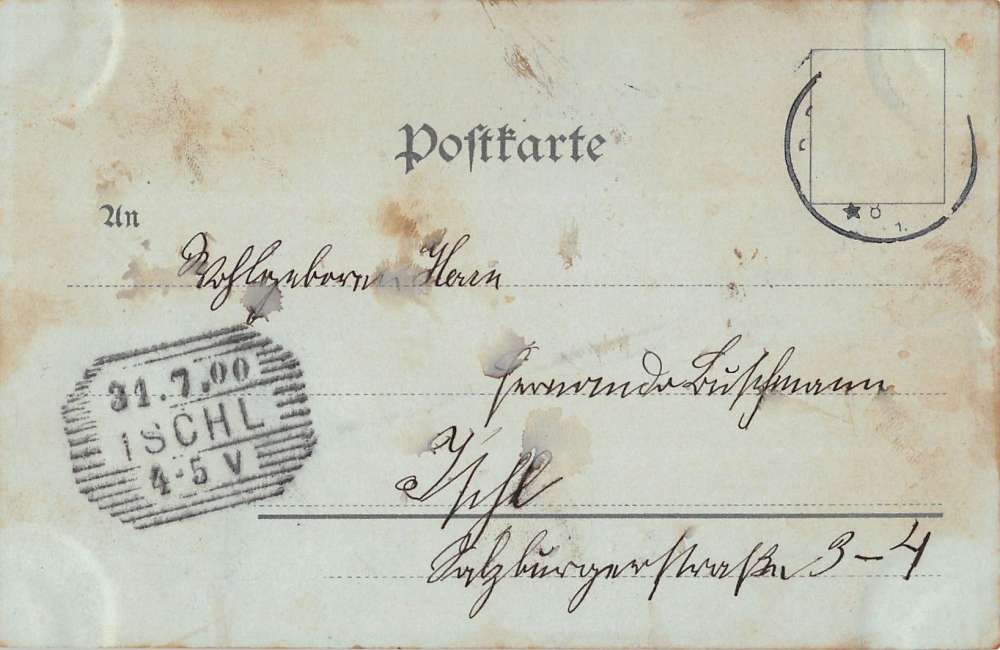 Postkarte
An
Wohlgeboren Herrn
Fernando Buschmann
31.7.00
ISCHL
4-5 V
Ischl
Salzburgerstraße 3-4